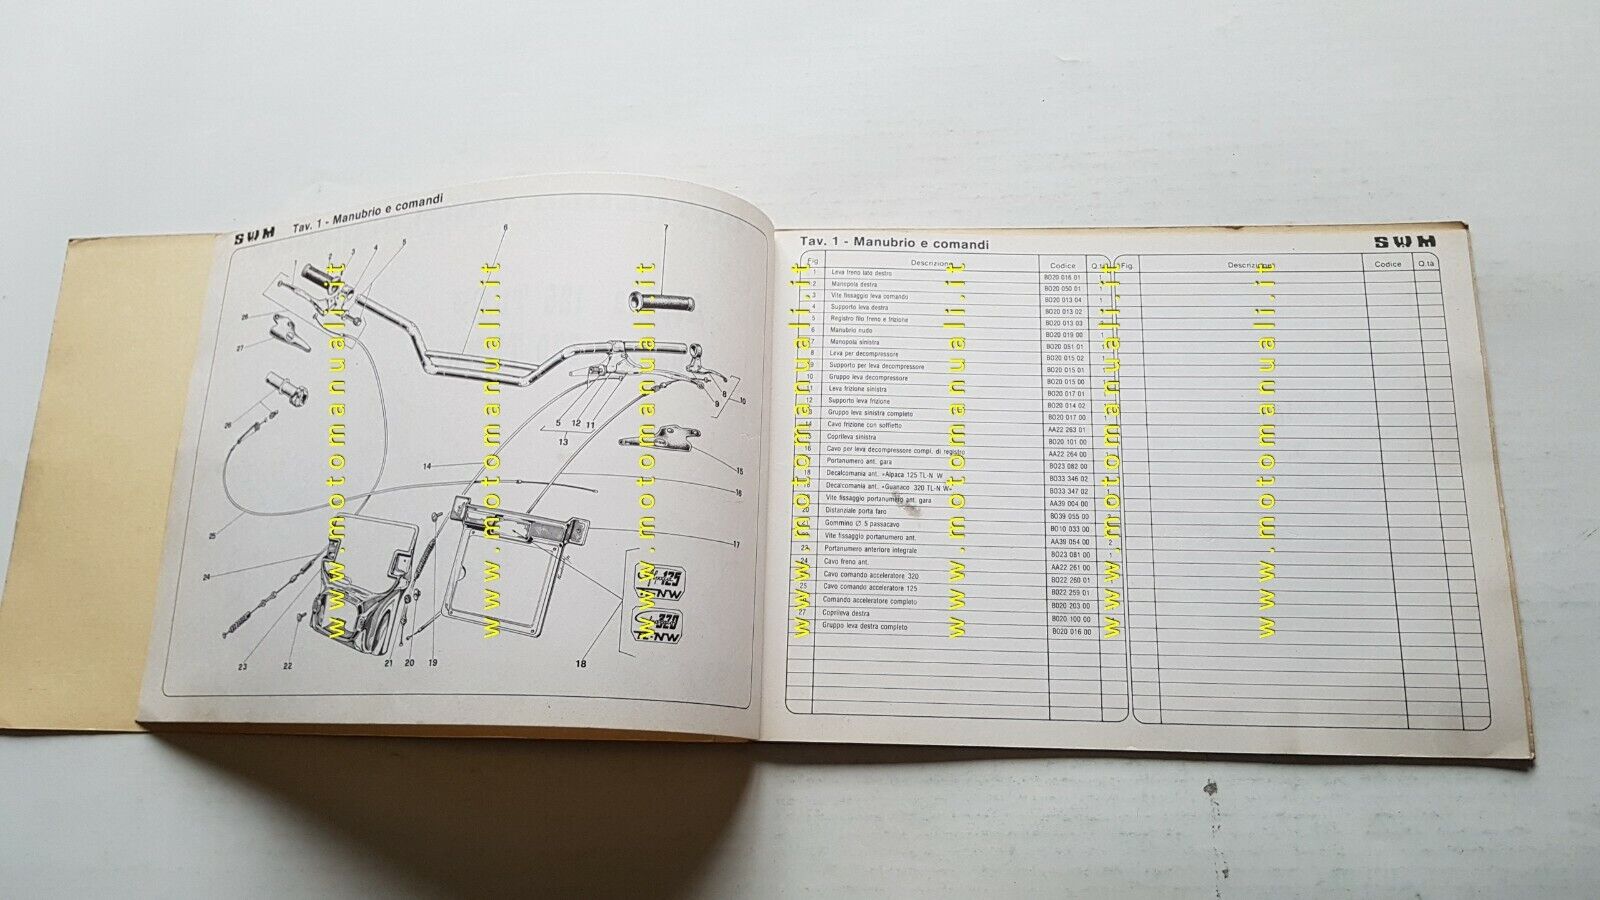 SWM Tav. 1 - Manubrio e comandi
1 2 3 4 5 6 7
26
27
28
8
9 10
5 12 11
13
14
15
16
25
17
24
125
TL-NW
320
TL-NW
23 22 21 20 19 18
Tav. 1 - Manubrio e comandi SWM
Fig. Descrizione Codice Q.tà Fig. Descrizione Codice Q.tà
1 Leva freno lato destro B020 016 01 1
2 Manopola destra B020 050 01 1
3 Vite fissaggio leva comando B020 013 04 1
4 Supporto leva destra B020 013 02
5 Registro filo freno e frizione B020 013 03
6 Manubrio nudo B020 019 00
7 Manopola sinistra B020 051 01
8 Leva per decompressore B020 015 02
9 Supporto per leva decompressore B020 015 01
10 Gruppo leva decompressore B020 015 00
11 Leva frizione sinistra B020 017 01
12 Supporto leva frizione B020 014 02
Gruppo leva sinistra completo B020 017 00
14 Cavo frizione con soffietto AA22 263 01
Coprileva sinistra B020 101 00
16 Cavo per leva decompressore compl. di registro AA22 264 00
Portanumero ant. gara B023 082 00
18 Decalcomania ant. «Alpaca 125 TL-N W B033 346 02
18 Decalcomania ant. «Guanaco 320 TL-N W» B033 347 02
Vite fissaggio portanumero ant. gara AA39 004 00
20 Distanziale porta faro B039 055 00
Gommino Ø 5 passacavo B010 033 00
Vite fissaggio portanumero ant. AA39 054 00 2
23 Portanumero anteriore integrale B023 081 00 1
24 Cavo freno ant. AA22 261 00
Cavo comando acceleratore 320 B022 260 01
25 Cavo comando acceleratore 125 B022 259 01
Comando acceleratore completo B020 203 00
27 Coprileva destra B020 100 00
Gruppo leva destra completo B020 016 00
www.motomanuali.it
www.motomanuali.it
www.motomanuali.it
www.motomanuali.it
www.motomanuali.it
www.motomanuali.it
www.motomanuali.it